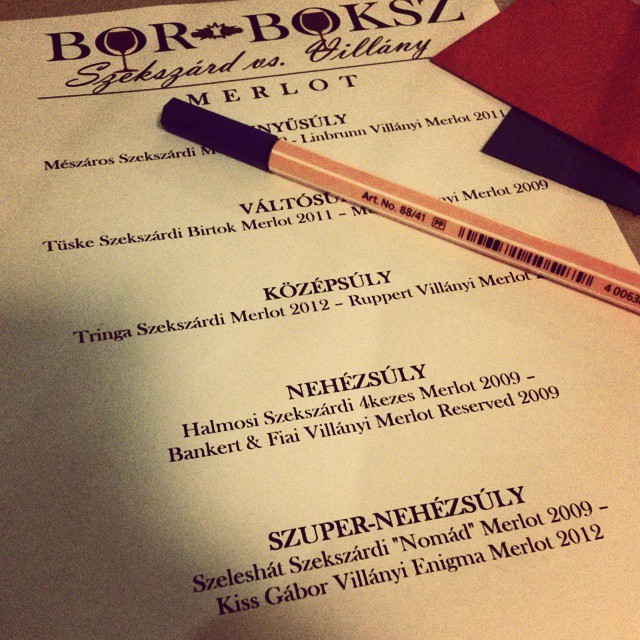 BOR BOKSZ
Szekszárd vs. Villány
MERLOT
NYŰSÚLY
Mészáros Szekszárdi - Linbrunn Villányi Merlot 2011
VÁLTÓSÚ
Tüske Szekszárdi Birtok Merlot 2011 – Merlot 2009
KÖZÉPSÚLY
Tringa Szekszárdi Merlot 2012 – Ruppert Villányi Merlot
NEHÉZSÚLY
Halmosi Szekszárdi 4kezes Merlot 2009 –
Bankert & Fiai Villányi Merlot Reserved 2009
SZUPER-NEHÉZSÚLY
Szeleshát Szekszárdi "Nomád" Merlot 2009 –
Kiss Gábor Villányi Enigma Merlot 2012
Art. No. 88/41 PP
4 0063